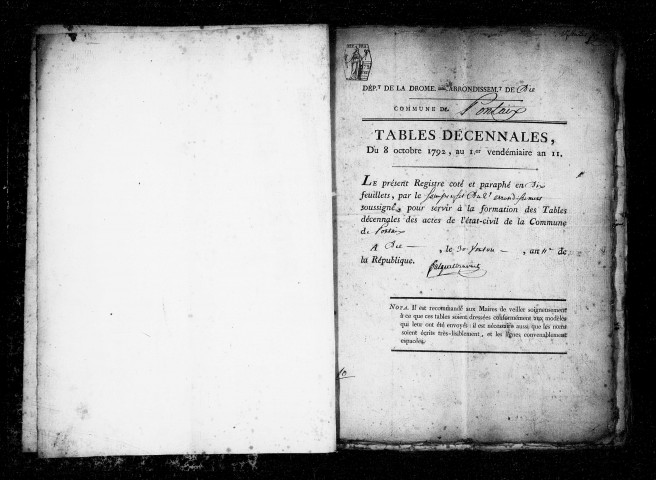 DÉP.T DE LA DROME. ARRONDISSEM.T DE Die
COMMUNE DE Pontaix
TABLES DÉCENNALES,
Du 8 octobre 1792, au 1.er vendémiaire an 11.
LE présent Registre coté et paraphé en dix
feuillets, par le Sous préfet de l'arrondissement
soussigné, pour servir à la formation des Tables
décennales des actes de l'état-civil de la Commune
de Pontaix
A Die , le 30 , an 11 de
la République.
NOTA. Il est recommandé aux Maires de veiller soigneusement
à ce que ces tables soient dressées conformément aux modèles
qui leur ont été envoyés : il est nécessaire aussi que les noms
soient écrits très-lisiblement, et les lignes convenablement
espacées.